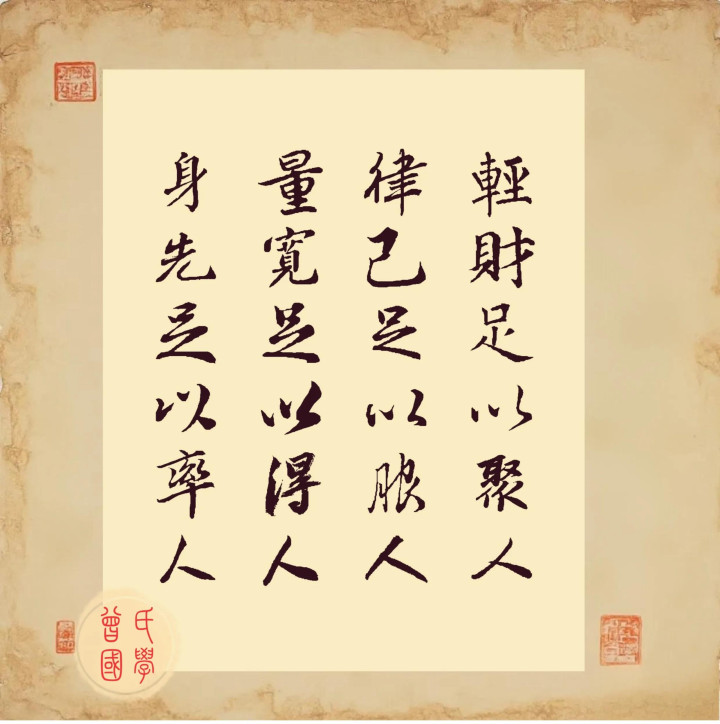 輕財足以聚人
律己足以服人
量寬足以得人
身先足以率人
曾氏國學